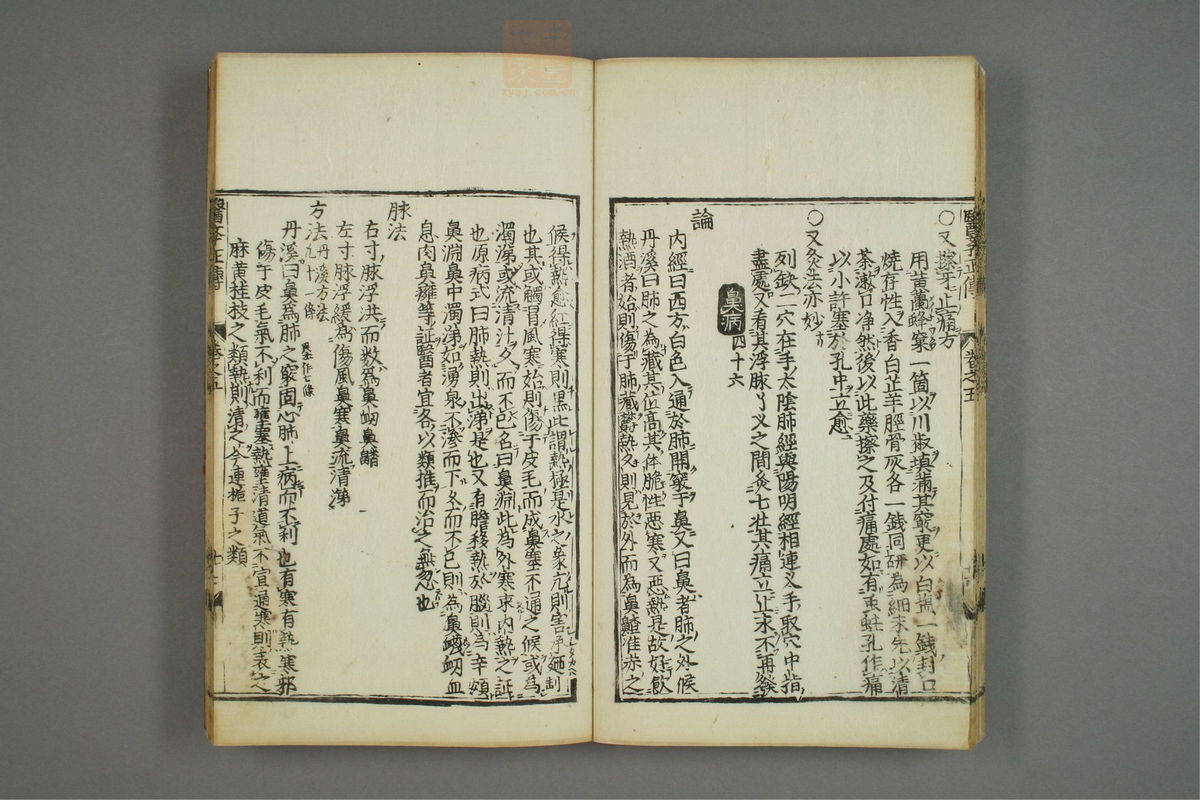 ○又擦牙止痛方
用黃蘭蜂窠一箇以川椒填滿其竅更以白塩一錢封口
燒存性入香白芷羊脛骨灰各一錢同研為細末先以清
茶漱口净然後以此藥擦之及付痛處如有䖝蛀孔作痛
以小許塞於孔中立愈
○又灸法亦妙
列缺二穴在手太陰肺經與陽明經相連义手取穴中指
盡處又看其浮脉丫义之間灸七壮其痛立止永不再發
鼻病 四十六
論
內經曰西方白色入通於肺開竅于鼻又曰鼻者肺之外候
丹溪曰肺之為藏其位高其体脆性惡寒又惡熱是故好飲
熱酒者始則傷于肺藏欝熱久則見於外而為鼻齄准赤之
醫學正傳 卷之五
候得熱愈紅得寒則黒此謂熱極是水之象亢則害承廼制
也其或觸冒風寒始則傷于皮毛而成鼻塞不通之候或為
濁涕或流清汁久而不已名曰鼻淵此為外寒束內熱之証
也原病式曰肺熱則出涕是也又有膽移熱於腦則為辛頞
鼻淵鼻中濁涕如湧泉不滲而下久而不已則為鼻衊衂血
息肉鼻癰等証醫者宜各以類推而治之無忽也
脉法
右寸脉浮洪而数為鼻衂鼻齄
左寸脉浮緩為傷風鼻寒鼻流清涕
方法 丹溪方法九十一條
丹溪曰鼻為肺之竅因心肺上病而不利也有寒有熱寒邪
傷于皮毛氣不利而壅塞熱壅清道氣不宣通寒則表之
麻黃桂枝之類熱則清之今連梔子之類
醫學正傳 卷之五